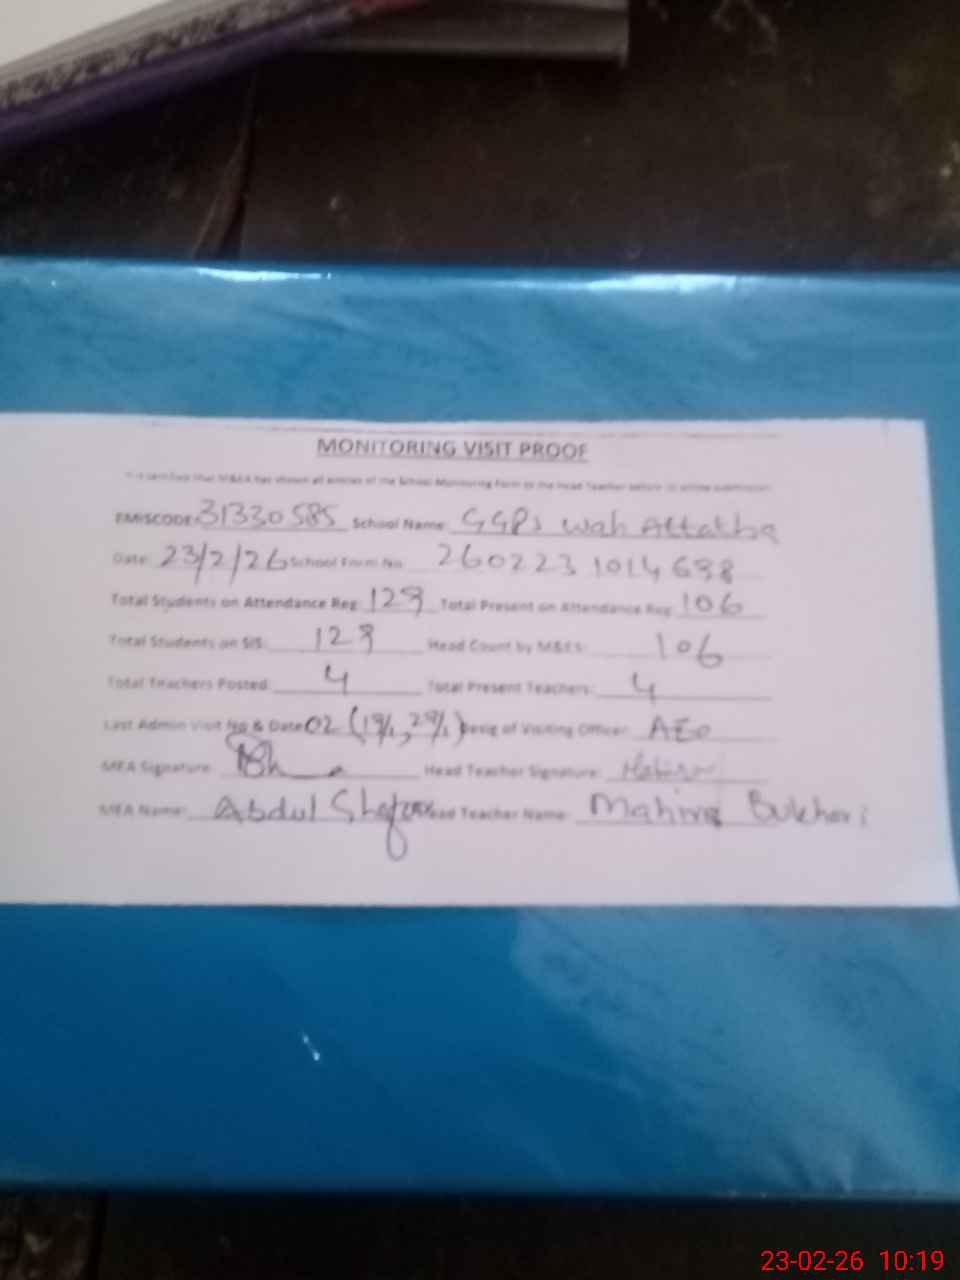 MONITORING VISIT PROOF
It is certified that M&EA has shown all entries of the School Monitoring Form to the Head Teacher before its online submission
EMISCODE: 31330585 School Name: GGPS Wah Attatha
Date: 23/2/26 School Form No 260223 1014698
Total Students on Attendance Reg: 129 Total Present on Attendance Reg: 106
Total Students on SIS: 129 Head Count by M&ES: 106
Total Teachers Posted: 4 Total Present Teachers: 4
Last Admin Visit No & Date: 02 Desig of Visiting Officer: AEO
MEA Signature: Head Teacher Signature:
MEA Name: Abdul Head Teacher Name: Bukhari
23-02-26 10:19